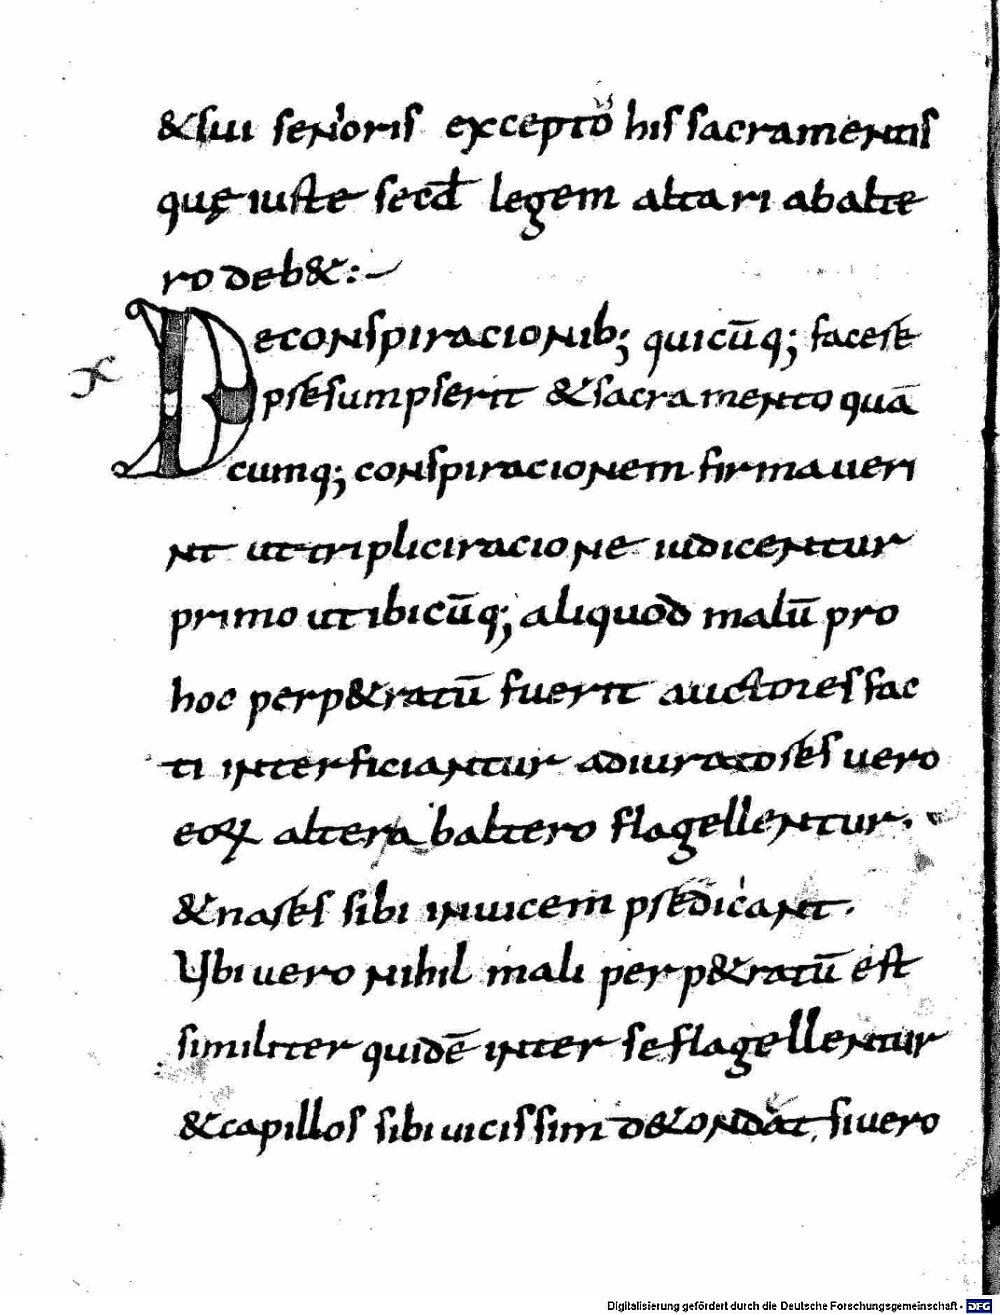 &sui senioris excepto his sacramentis
quę iuste secd legem altari ab alte
ro deb&:-
Deconspiracionib; quicūq; facese
psesumpserit & sacramento quā
cumq; conspiracionem firmaueri
nt ut tripliciracione iudicentur
primo ut ibicūq; aliquod malū pro
hoc perp&ratū fuerit auctores fac
ti interficiantur adiuratoses uero
eoꝝ alter abaltero flagellentur.
& nases sibi inuicem psedicant.
Ubi uero nihil mali perp&ratū est
similiter quidē inter se flagellentur
& capillos sibi uicissim de&ondāt, si uero
Digitalisierung gefördert durch die Deutsche Forschungsgemeinschaft - DFG